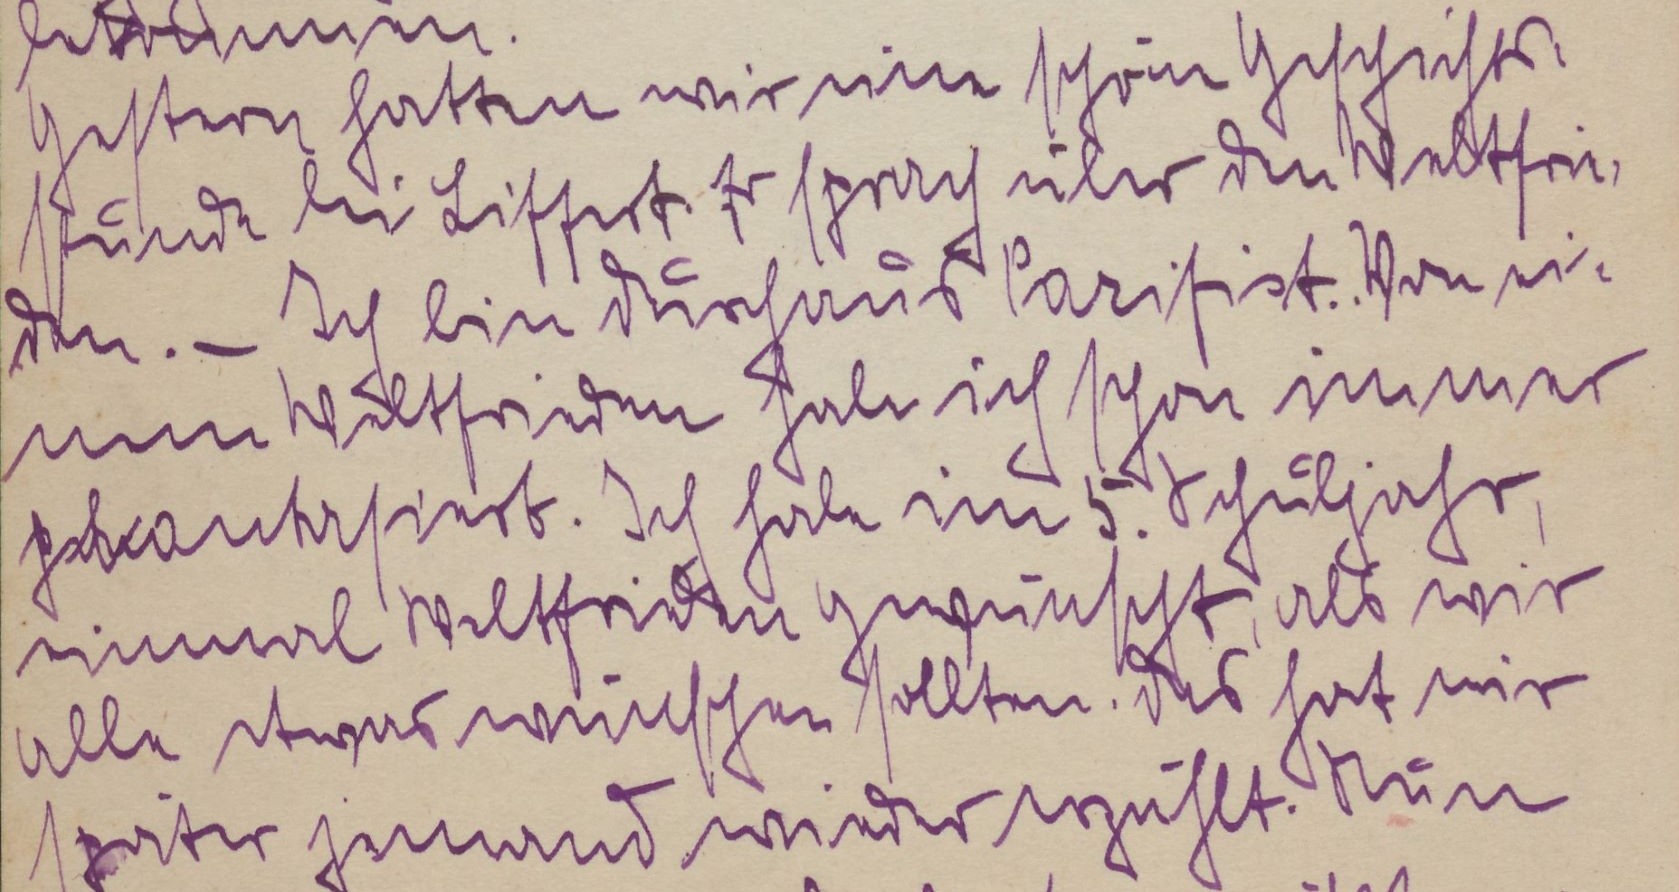 bekommen.
Gestern hatten wir eine schöne Geschichts-
stunde bei Liffert. Er sprach über den Weltfrie-
den. – Ich bin durchaus Pazifist. Von ei-
nem Weltfrieden habe ich schon immer
phantasiert. Ich habe im 5. Schuljahr,
einmal Weltfrieden gewünscht, als wir
alle etwas wünschen sollten. Das hat mir
später jemand wieder erzählt. Nun